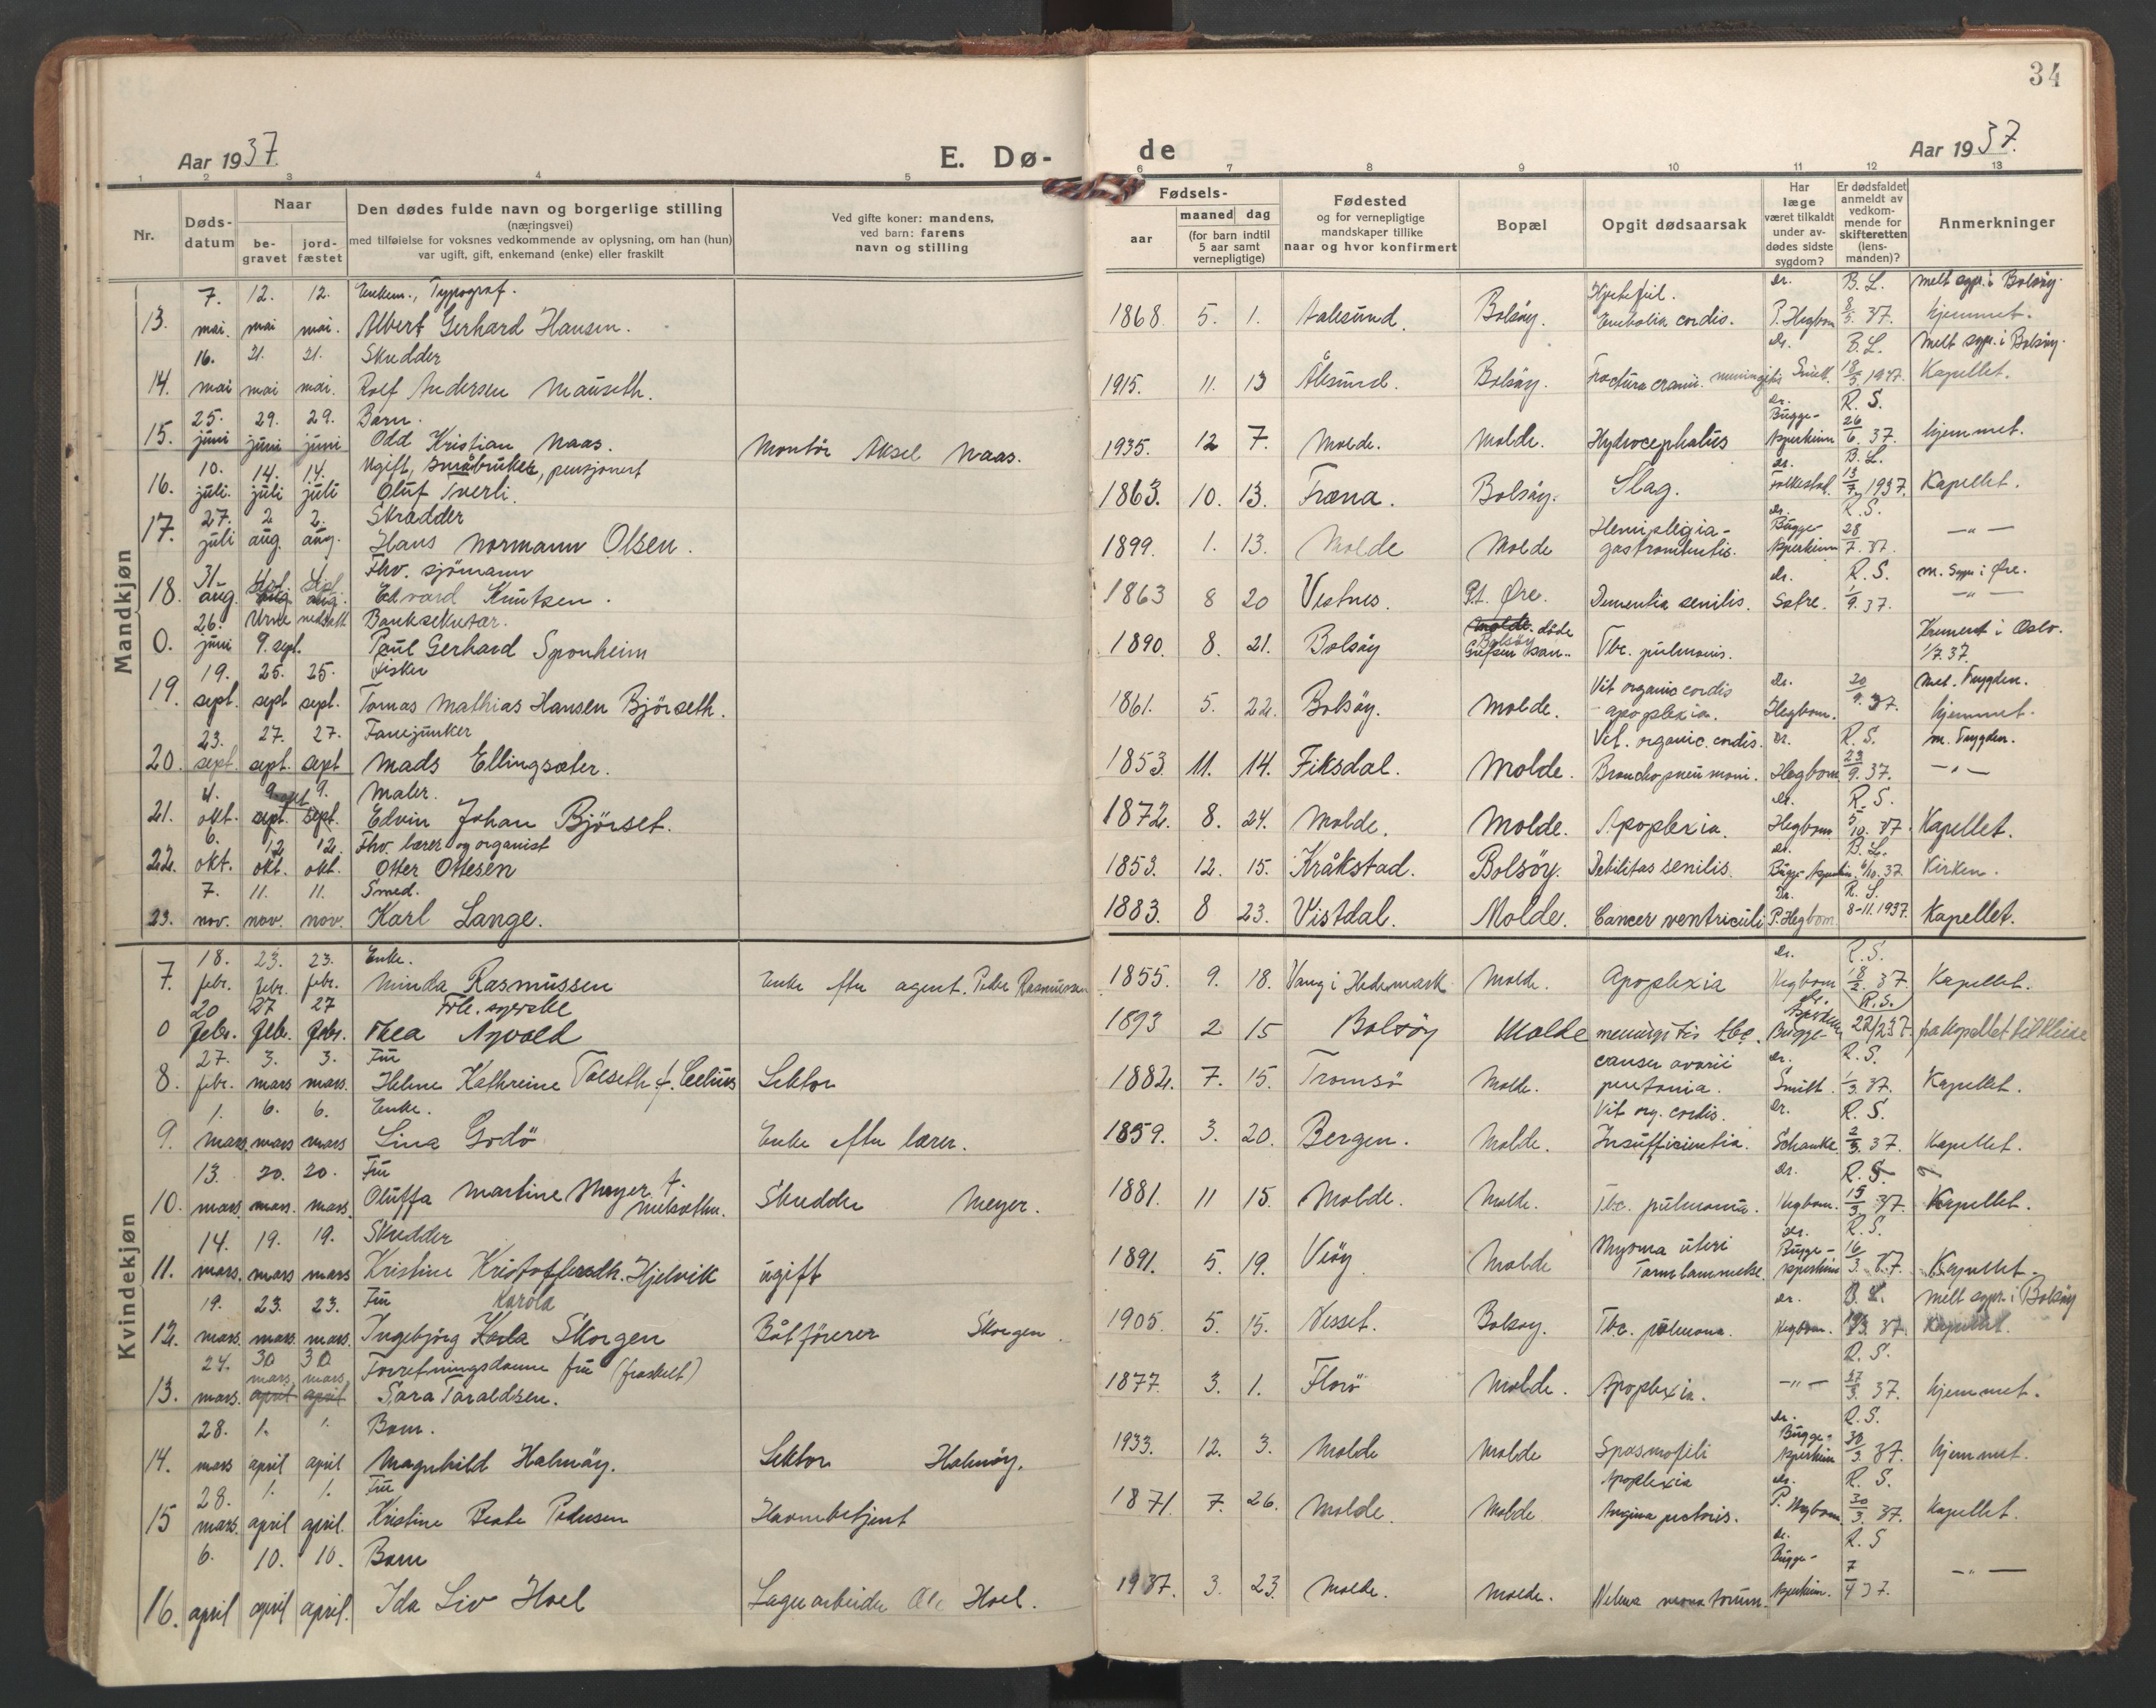 34
Aar 1937
E. Dø-
de
Aar 1937.
1 2 3 4 5
6 7 8 9 10 11 12 13
Nr.
Døds-
datum
Naar
be-
gravet
jord-
fæstet
Den dødes fulde navn og borgerlige stilling
(næringsvei)
med tilføielse for voksnes vedkommende av oplysning, om han (hun)
var ugift, gift, enkemand (enke) eller fraskilt
Ved gifte koner: mandens,
ved barn: farens
navn og stilling
Fødsels-
aar
maaned dag
(for barn indtil
5 aar samt
vernepligtige)
Fødested
og for vernepligtige
mandskaper tillike
naar og hvor konfirmert
Bopæl
Opgit dødsaarsak
Har
læge
været tilkaldt
under av-
dødes sidste
sygdom?
Er dødsfaldet
anmeldt av
vedkom-
mende for
skifteretten
(lens-
manden)?
Anmerkninger
Mandkjøn
7. 12. 12. Enkem., Typograf. Hjertefeil. Dr. B. L. Melt sogn. i Bolsøy.
13. mai. mai mai. Albert Gerhard Hansen. 1868. 5. 1. Aalesund. Bolsøy. Embolia cordis. P. Hegbom 8/5. 37. hjemmet.
16. 21. 21. Skredder Dr. B. L. Melt sogn. i Bolsøy.
14. mai mai mai. Rolf Andersen Mauseth. 1915. 11. 13 Ålesund. Bolsøy. Fractura cranii. meningitis Smith. 18/5 1937. Kapellet.
25. 29. 29. Barn. Dr. Bugge- R. S.
15. juni juni juni Odd Kristian Naas. Montör Aksel Naas. 1935. 12 7. Molde. Molde. Hydrocephalus Asperheim 26/6. 37. hjemmet.
10. 14. 14. Ugift, småbruker, pensjonert Dr. B. L.
16. juli. juli juli Oluf Tverli. 1863. 10. 13. Fræna. Bolsøy. Slag. Folkestad. 13/7 1937. Kapellet.
27. 2 2. Skradder Hemiplegia- Dr. Bugge- R. S.
17. juli aug. aug. Hans Normann Olsen. 1899. 1. 13. Molde Molde Asperheim 28/7. 37. -"-
31. Fhv. sjömann Dr. R. S. m. Sogn i Øre.
18. aug. Edvard Knutsen. 1863 8 20 Vestnes. P.t. Øre. Dementia senilis. Sætre. 1/9. 37. -"-
26. Urne nedsatt Banksekretær. Molde. døde
0. juni 9. sept. Paul Gerhard Sponheim 1890. 8. 21. Bolsøy Bolsøy Grefsen san.. Tbc. pulmonis. Kremert i Oslo. 1/7. 37.
19. 25. 25. Fisker Vit organic cordis Dr. Mel. Trygden.
19. sept. sept sept. Tomas Mathias Hansen Björseth. 1861. 5. 22. Bolsøy. Molde. - apoplexia. Hegbom. 20/9. 37. hjemmet.
23. 27. 27. Fanejunker Vit. organic. cordis. Dr. R. S. m. Trygden.
20. sept. sept. sept Mads Ellingsæter. 1853. 11. 14. Fiksdal. Molde. Bronchopneumoni. Hegbom 23/9. 37. -"-
4. 9. okt 9. Maler. Dr. R. S.
21. okt. sept. sept. Edvin Johan Bjørset. 1872. 8. 24. Molde. Molde. Apoplexia. Hegbom 5/10. 37. Kapellet.
6. 12 12. Fhv. lærer og organist Dr. B. L.
22. okt. okt. okt. Otter Ottesen 1853. 12. 15. Kråkstad. Bolsöy. Debilitas senilis. Bugge-Asperheim. 6/10. 37. Kirken.
7. 11. 11. Smed. Dr. R. S.
23. nov. nov. nov. Karl Lange. 1883. 8 23. Vistdal. Molde. Cancer ventriculi P. Hegbom. 8-11. 1937. Kapellet.
Kvindekjøn
18. 23. 23. Enke. Dr. R. S.
7. febr. febr. febr. Minda Rasmussen Enke efter agent. Peder Rasmussen 1855. 9. 18. Vang i Hedemark Molde. Apoplexia Hegbom 18/2. 37. Kapellet.
20 27 27 Frk. syerske Dr. R. S.
0 febr. febr. febr. Thea Aqvold 1893 2 15 Bolsöy Molde meningitis tbc. Asperheim Bugge- 22/2 37. fra kapellet til Kleive
27. 3. 3. Fru cancer ovarii Dr. R. S.
8. febr. mars mars. Helene Kathreine Tolseth f. Celius Lektor 1882. 7. 15. Tromsö Molde. Smith. 1/3. 37. Kapellet.
1. 6. 6. Enke. Vit org. cordis. Dr. R. S.
9. mars. mars mars Lina Godö Enke efter lærer. 1859. 3. 20. Bergen. Molde. Insufficientia. Schanke 2/3. 37. Kapellet.
13. 20. 20. Fru Dr. R. S.
10. mars. mars. mars. Oluffa Martine Meyer f. Skredder Meyer. 1881. 11 15. Molde. Molde. Tbc. pulmonia. Hegbom. 15/3 37. Kapellet.
14. 19. 19. Skredder Myoma uteri Dr. Bugge- R. S.
11. mars. mars mars Kristine Kristoffersdtr. Hjelvik ugift 1891. 5. 19. Veøy Molde Tarmlammelse. Asperheim 16/3. 37. Kapellet.
19. 23. 23. Fru Karola Dr. B. L. Melt sogn. i Bolsöy
12. mars. mars. mars. Ingebjörg Karla Skorgen Båtförerer Skorgen. 1905. 5. 15. Nesset. Bolsøy. Tbc. pulmona. Hegbom. 19/3. 37. Kapellet.
24. 30 30 Forretningsdame fru (fraskilt) R. S.
mars, mars,
13. mars. april april Sara Taraldsen. 1877. 3. 1. Florö Molde. Apoplexia. -"- 27/3. 37. hjemmet.
28. 1. 1. Barn. Dr. Bugge- R. S.
14. mars april april Magnhild Halmøy. Lektor Halmøy. 1933. 12. 3. Molde Molde Spasmofili Asperheim 30/3. 37. hjemmet.
28. 1. 1. Fru Apoplexia Dr. R. S.
15 mars. april april. Kristine Beate Pedersen Havnebetjent 1871. 7. 26. Molde. Molde. Angina pectoris. P. Hegbom. 30/3. 37. Kapellet.
6. 10. 10. Barn Dr. Bugge- R. S
16. april april april. Ida Liv Hoel Lagerarbeider Ole Hoel. 1937. 3. 23 Molde. Molde. Melena neonatorum. Asperheim. 7/4 37. -"-